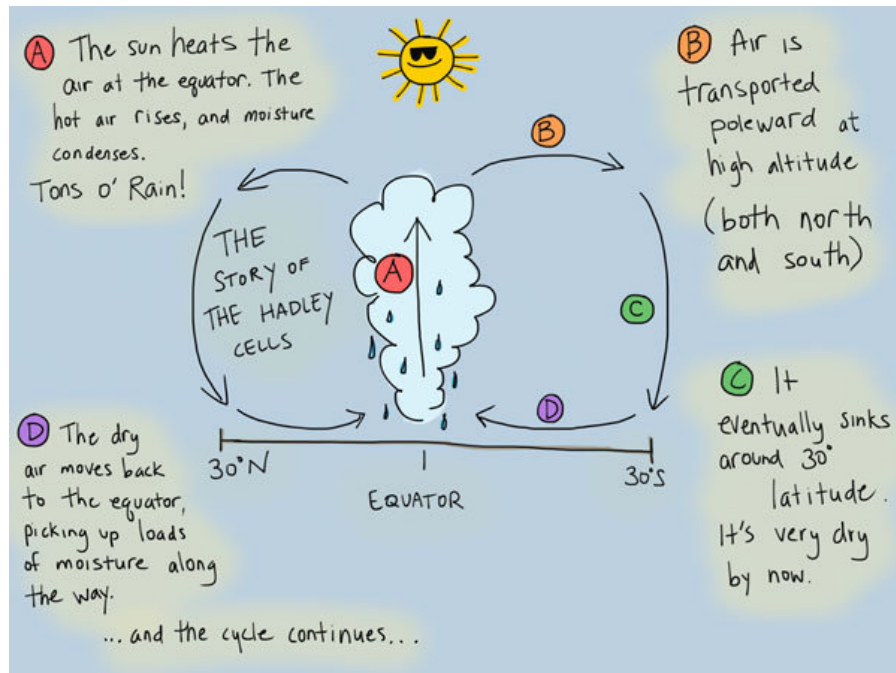 A The sun heats the
air at the equator. The
hot air rises, and moisture
condenses.
Tons o' Rain!
B Air is
transported
poleward at
high altitude
(both north
and south)
B
THE
STORY OF
THE HADLEY
CELLS
A
C
C It
eventually sinks
around 30°
latitude.
It's very dry
by now.
D
D The dry
air moves back
to the equator,
picking up loads
of moisture along
the way.
30°N
EQUATOR
30°S
...and the cycle continues...